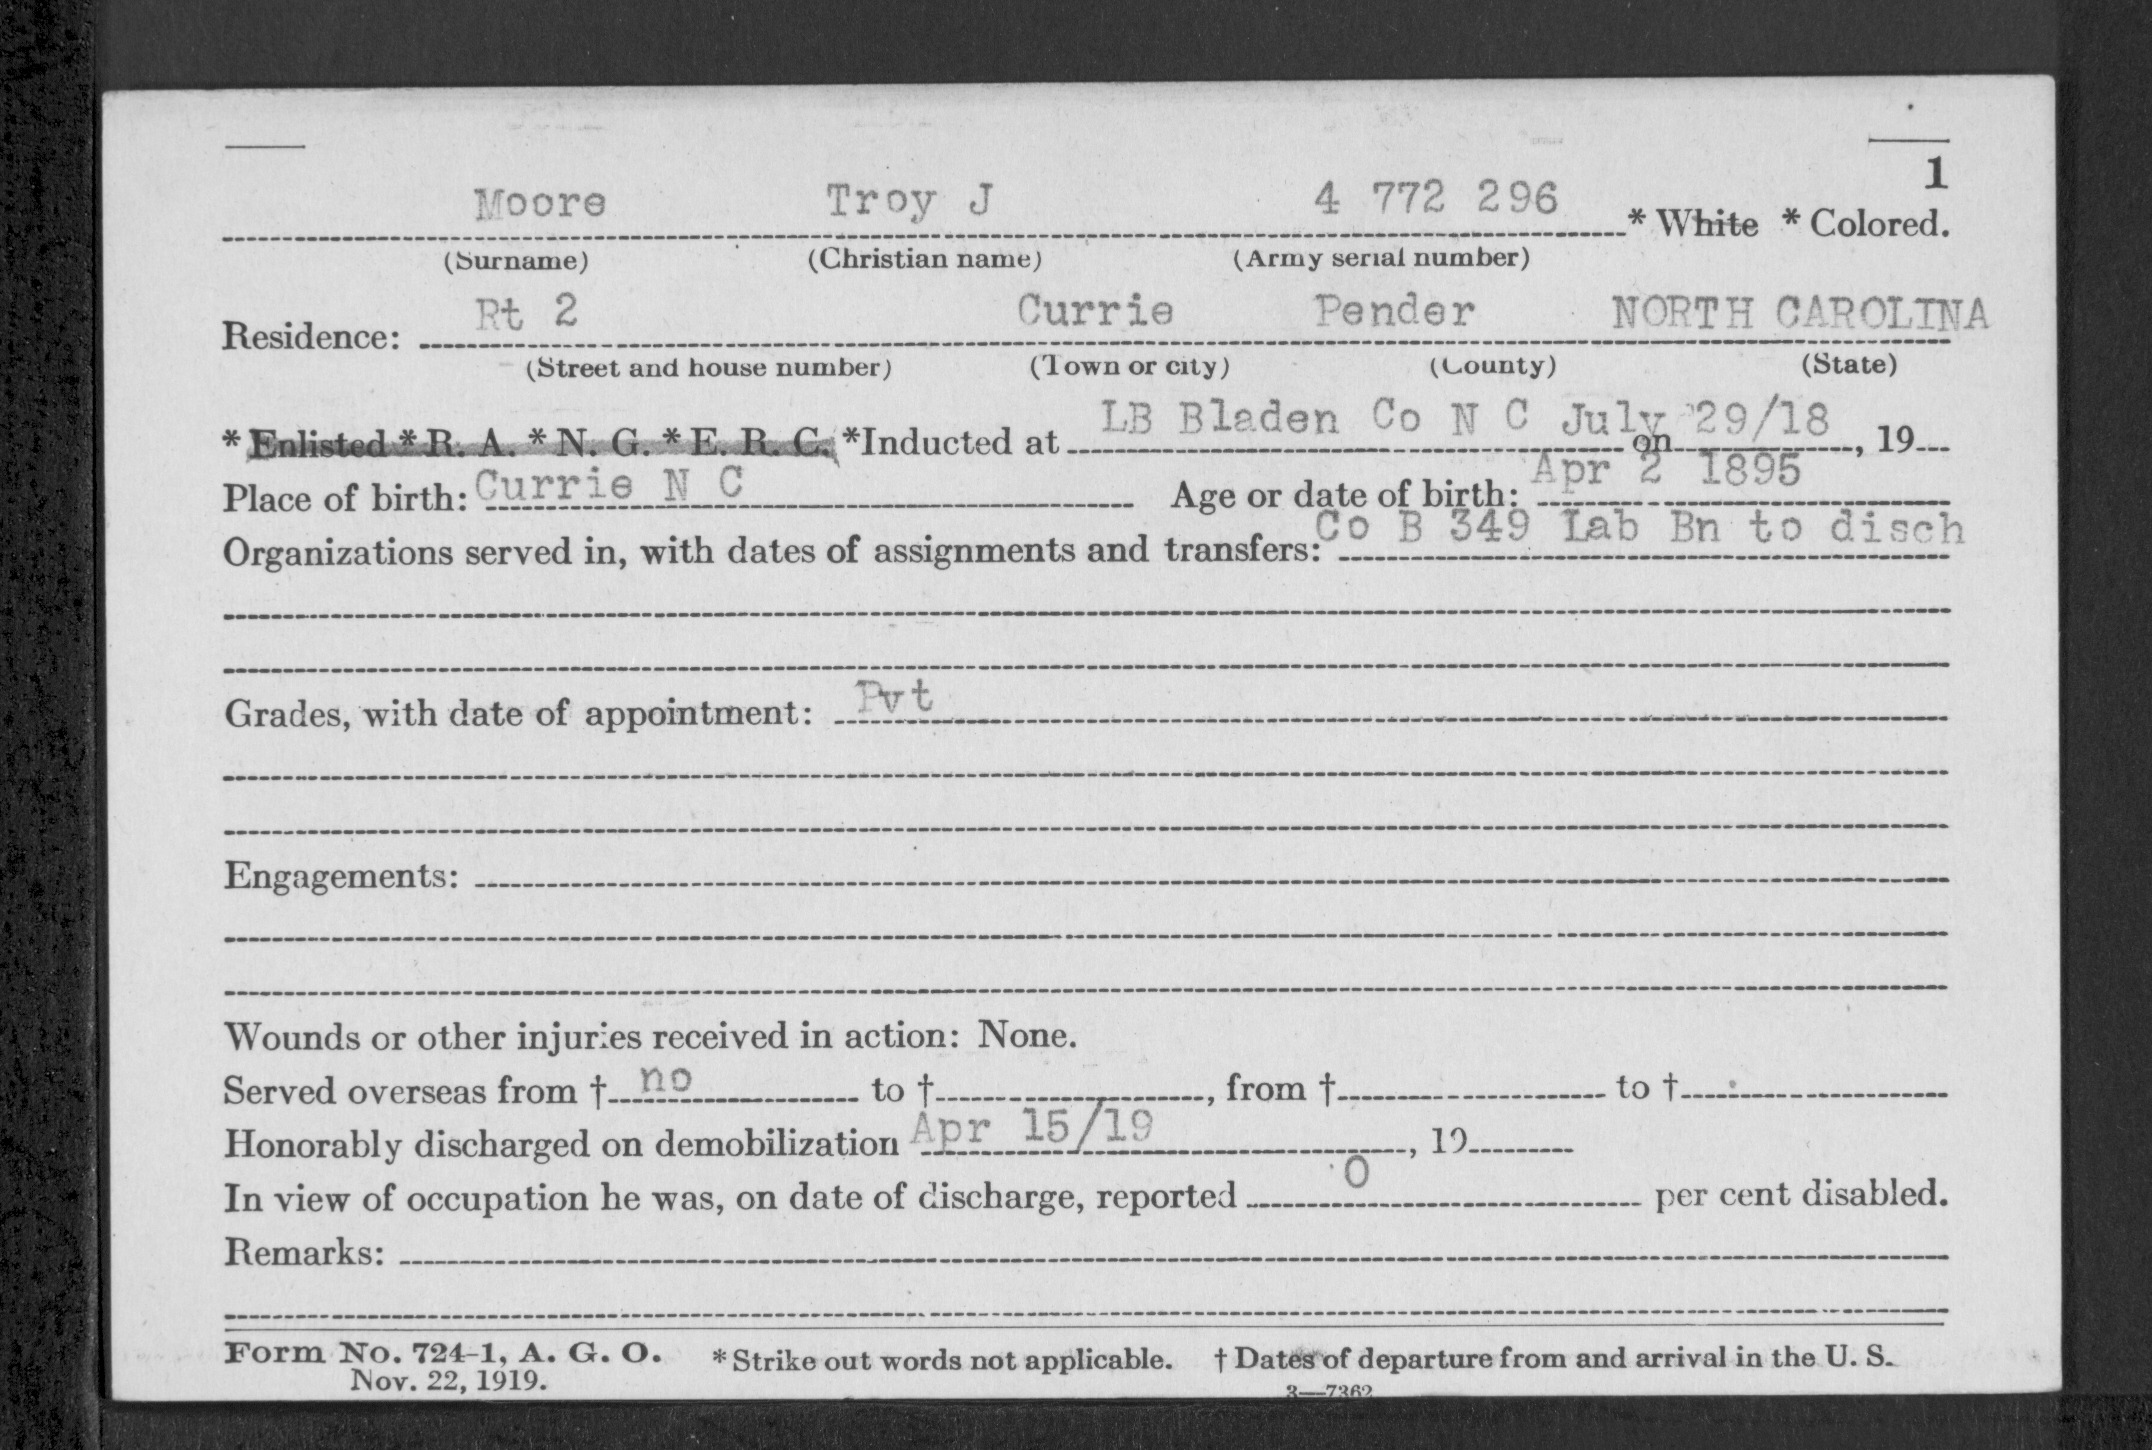 1
Moore Troy J 4 772 296 * White * Colored.
(Surname) (Christian name) (Army serial number)
Rt 2 Currie Pender NORTH CAROLINA
Residence:
(Street and house number) (Town or city) (County) (State)
LB Bladen Co N C July 29/18
* Enlisted * R. A. * N. G. * E. R. C. *Inducted at on , 19
Place of birth: Currie N C Age or date of birth: Apr 2 1895
Organizations served in, with dates of assignments and transfers: Co B 349 Lab Bn to disch
Grades, with date of appointment: Pvt
Engagements:
Wounds or other injuries received in action: None.
Served overseas from † no to † , from † to †
Honorably discharged on demobilization Apr 15/19 , 19
In view of occupation he was, on date of discharge, reported 0 per cent disabled.
Remarks:
Form No. 724-1, A. G. O. * Strike out words not applicable. † Dates of departure from and arrival in the U. S.
Nov. 22, 1919. 3—7362